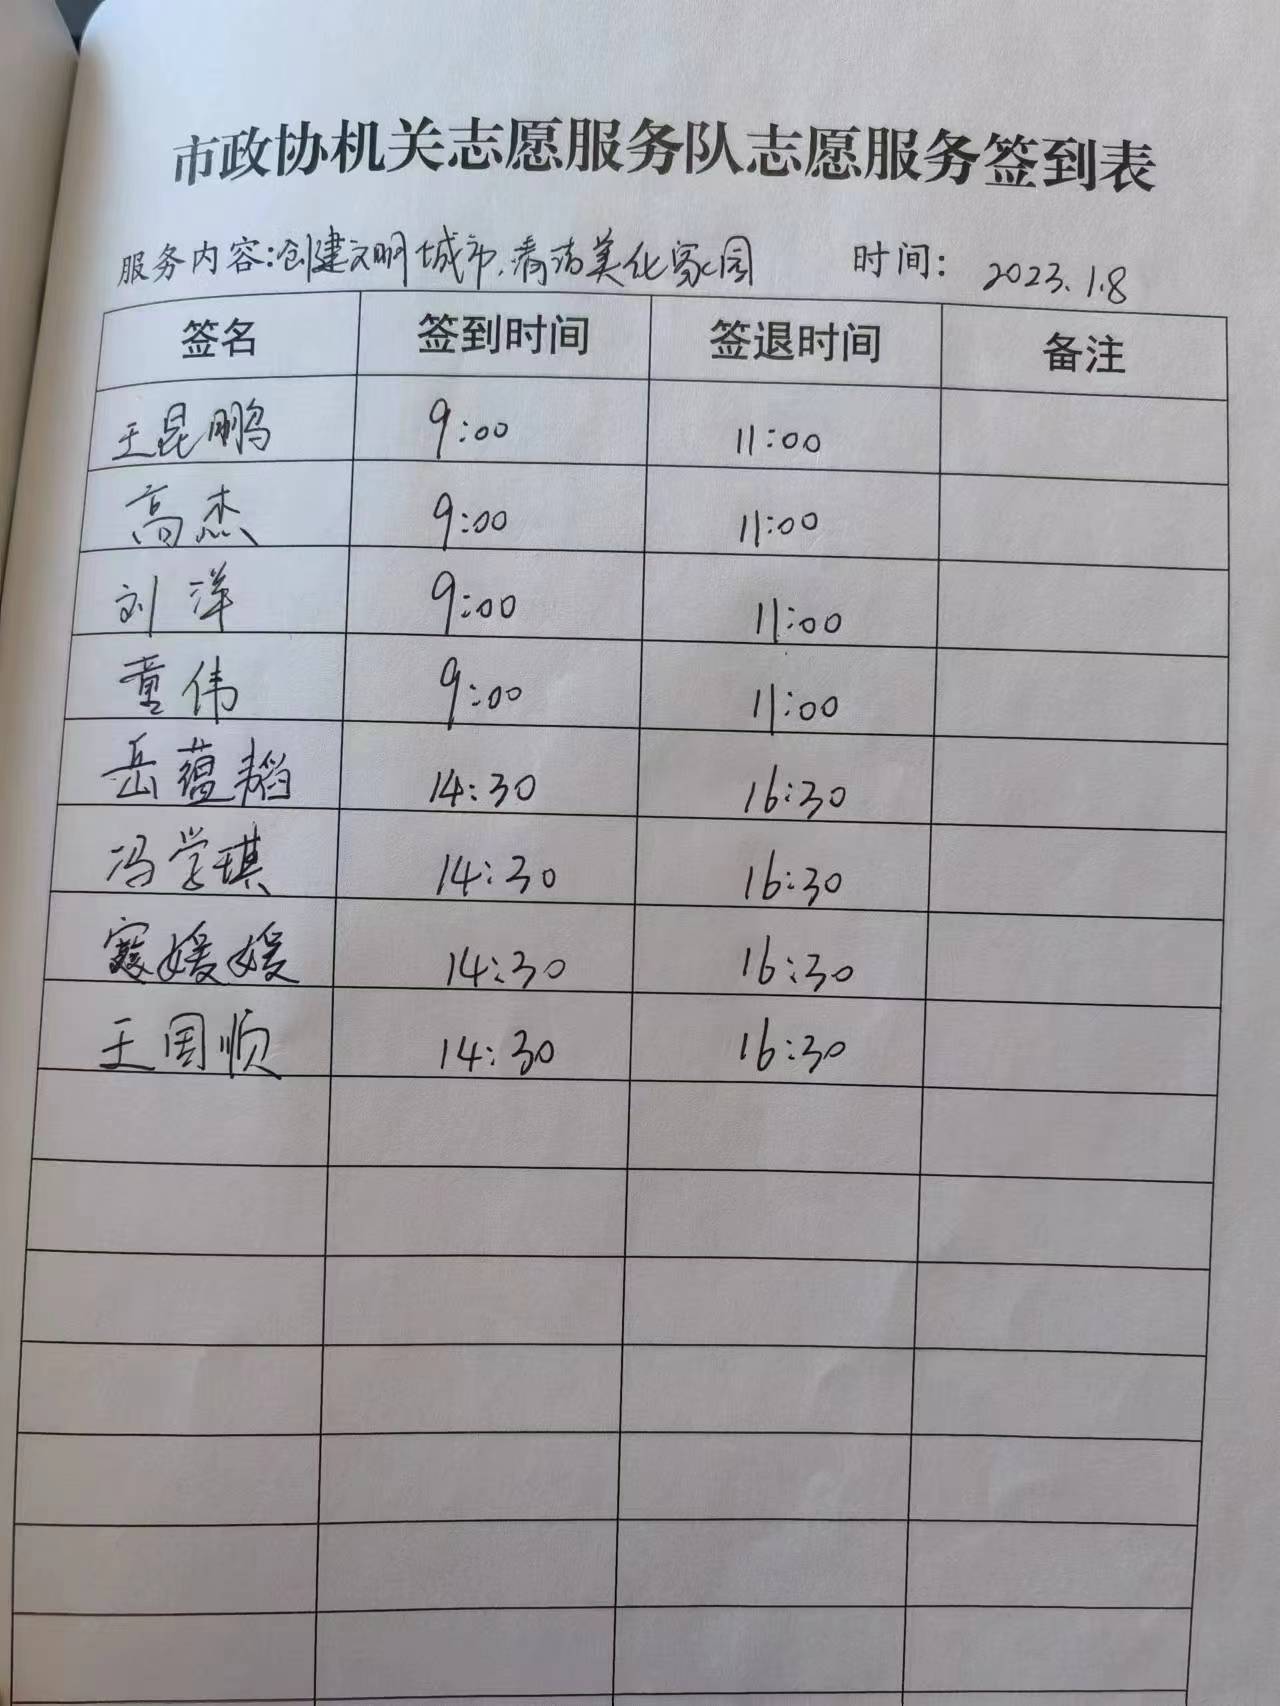 市政协机关志愿服务队志愿服务签到表
服务内容:创建文明城市,清洁美化家园 时间: 2023.1.8
签名 签到时间 签退时间 备注
王昆鹏 9:00 11:00
高杰 9:00 11:00
刘洋 9:00 11:00
童伟 9:00 11:00
岳蕴韬 14:30 16:30
冯学琪 14:30 16:30
寇媛媛 14:30 16:30
王国顺 14:30 16:30